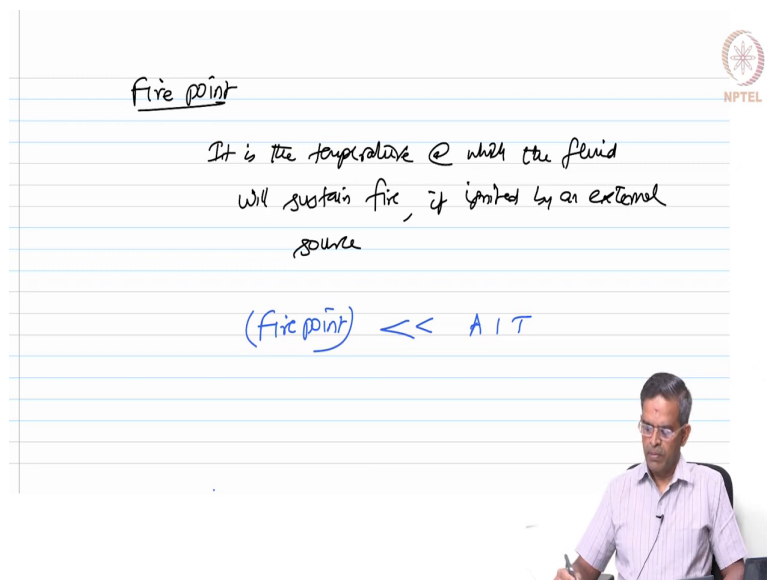 Fire point
NPTEL
It is the temperature @ which the fluid
will sustain fire, if ignited by an external
source
(Fire point) << AIT